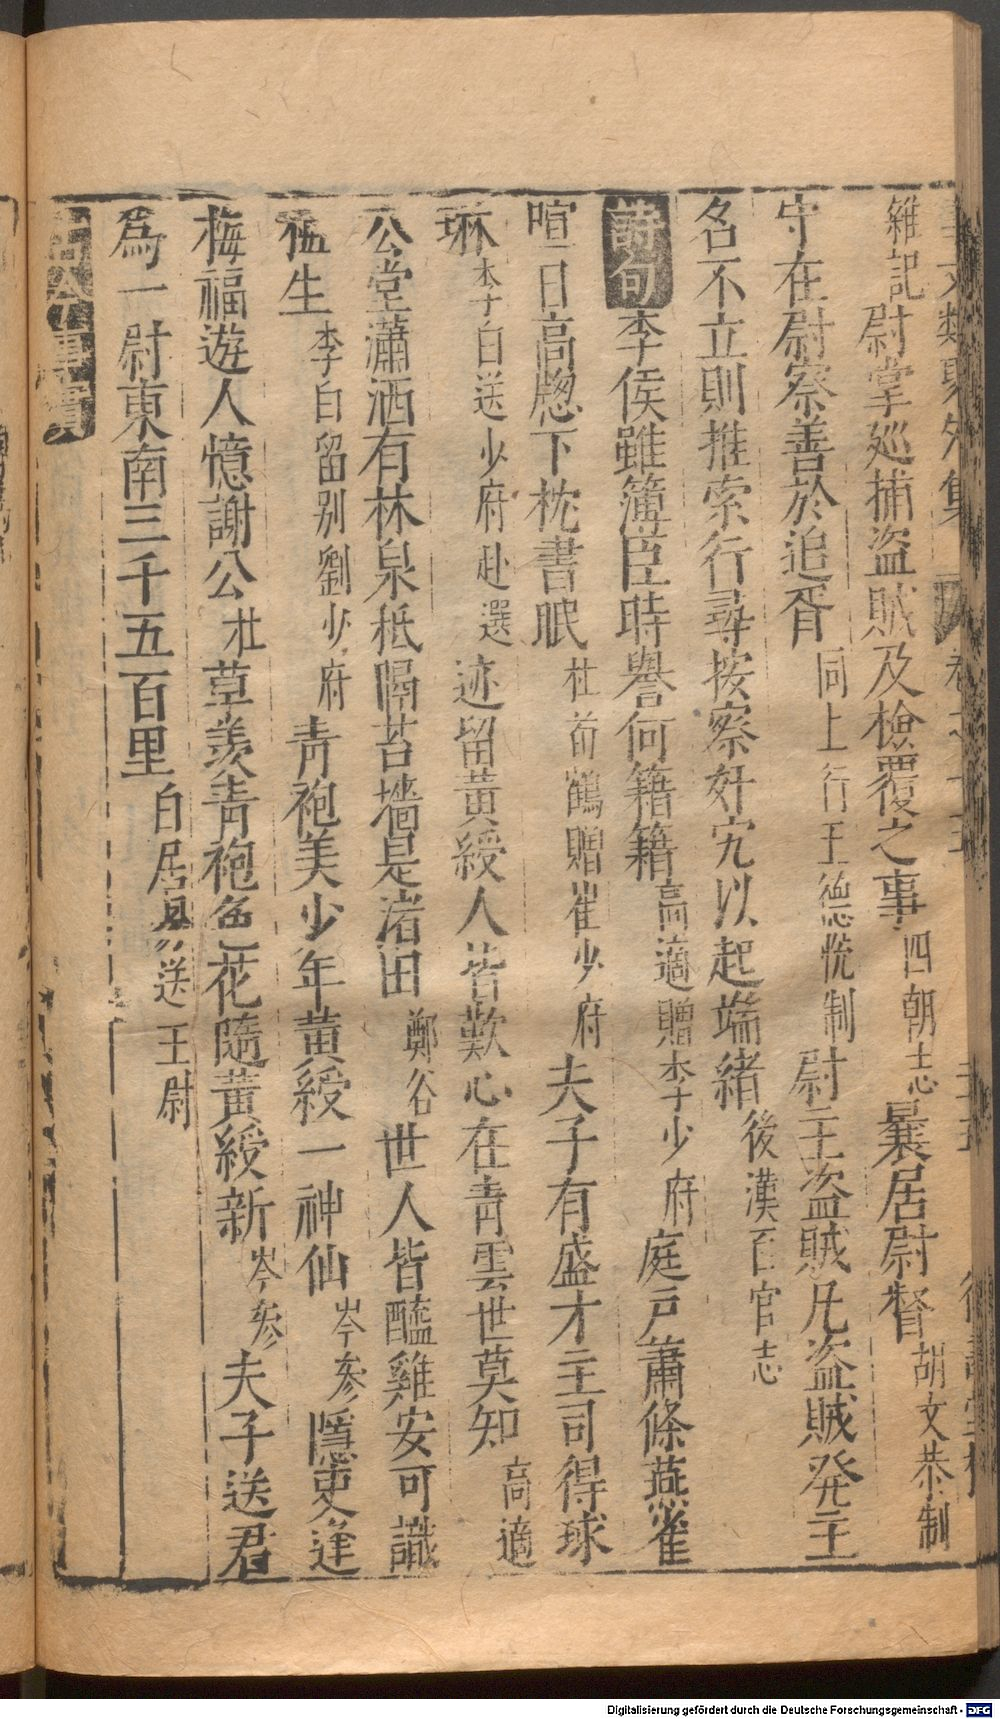 事文類聚外集 卷之十五
雜記尉掌廵捕盗賊及檢覆之事四朝志曩居尉督胡文恭制
守在尉察善於追胥同上行王德恱制尉主盗賊凡盗賊発主
名不立則推索行尋按察奸宄以起端緒後漢百官志
詩句李侯雖簿臣時譽何籍籍高適贈李少府庭戸蕭條燕雀
喧日高牎下枕書眠杜荀鶴贈崔少府夫子有盛才主司得球
琳李白送少府赴選迹留黄綬人皆歎心在青雲世莫知高適
公堂瀟洒有林泉秪隔苔墻是渚田鄭谷世人皆醯雞安可識
梅生李白留别劉少府青袍美少年黄綬一神仙岑参隱吏逢
梅福遊人憶謝公杜草羨青袍色花隨黄綬新岑参夫子送君
為一尉東南三千五百里白居易送王尉
古今事實
Digitalisierung gefördert durch die Deutsche Forschungsgemeinschaft - DFG